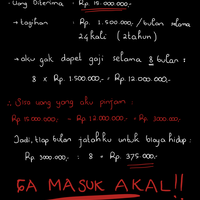 · Uang diterima = Rp. 15.000.000,-
→ tagihan : Rp. 1.500.000,- / bulan selama
24 kali (2 tahun)
→ aku gak dapet gaji selama 8 bulan :
8 x Rp. 1.500.000,- = Rp. 12.000.000,-
∴ Sisa uang yang aku pinjam :
Rp. 15.000.000,- - Rp. 12.000.000,- = Rp. 3000.000,-
Jadi, tiap bulan jatahku untuk biaya hidup :
Rp. 3000.000,- : 8 = Rp. 375.000,-
GA MASUK AKAL!!